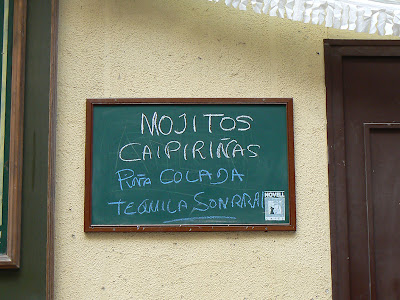 MOJITOS
CAIPIRIÑAS
PIÑA COLADA
TEQUILA SONRRAI
NOVELL